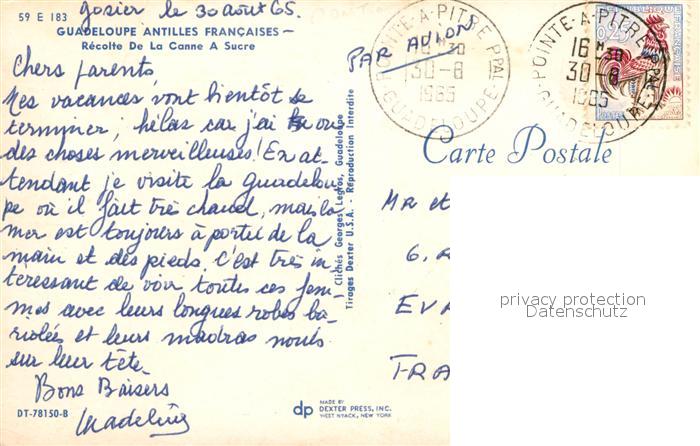 Gosier le 30 août 65.
59 E 183
GUADELOUPE ANTILLES FRANÇAISES
Récolte De La Canne A Sucre
PAR AVION
Chers parents,
Mes vacances vont bientôt se
terminer, hélas car j'ai vu
des choses merveilleuses! En at-
tendant je visite la Guadelou-
pe où il fait très chaud, mais la
mer est toujours à portée de la
main et des pieds. C'est très in-
téressant de voir toutes ces fem-
mes avec leurs longues robes ba-
riolées et leurs madras noués
sur leur tête.
Bons Baisers
Madeleine
DT-78150-B
Clichés Georges Legros, Guadeloupe
Tirages Dexter U.S.A. - Réproduction Interdite
dp
MADE BY
DEXTER PRESS, INC.
WEST NYACK, NEW YORK
POINTE-A-PITRE PPAL
16 H 30
30-8
1965
GUADELOUPE
POINTE-A-PITRE PPAL
16 H 30
30-8
1965
GUADELOUPE
0,25
Carte Postale
MR et
6. R
EVA
FRA
privacy protection
Datenschutz